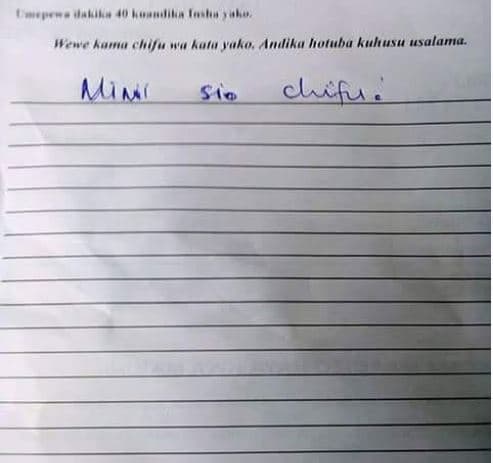 Umepewa dakika 40 kuandika Insha yako.
Wewe kama chifu wa kata yako. Andika hotuba kuhusu usalama.
Mimi sio chifu!